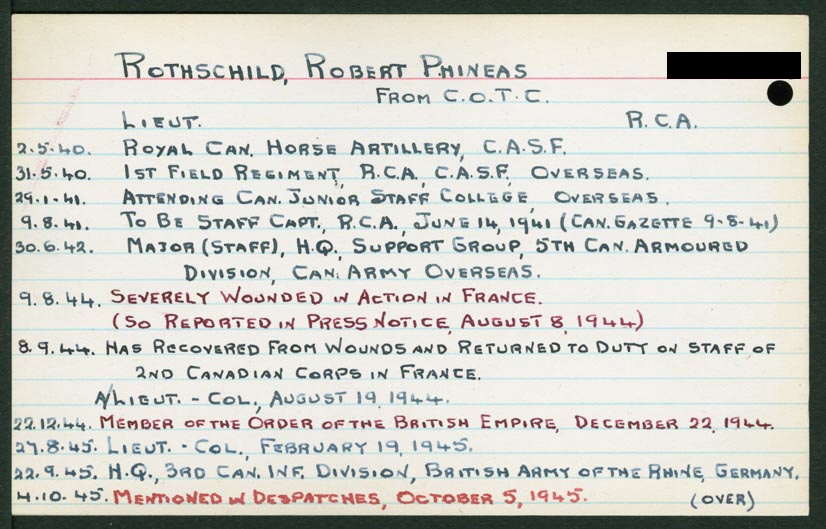 ROTHSCHILD, ROBERT PHINEAS
FROM C.O.T.C.
LIEUT. R.C.A.
2.5.40. ROYAL CAN. HORSE ARTILLERY, C.A.S.F.
31.5.40. 1ST FIELD REGIMENT, R.C.A., C.A.S.F., OVERSEAS.
29.1.41. ATTENDING CAN. JUNIOR STAFF COLLEGE, OVERSEAS.
9.8.41. TO BE STAFF CAPT., R.C.A., JUNE 14, 1941 (CAN. GAZETTE 9-8-41)
30.6.42. MAJOR (STAFF), H.Q., SUPPORT GROUP, 5TH CAN. ARMOURED
DIVISION, CAN. ARMY OVERSEAS.
9.8.44. SEVERELY WOUNDED IN ACTION IN FRANCE.
(SO REPORTED IN PRESS NOTICE, AUGUST 8, 1944)
8.9.44. HAS RECOVERED FROM WOUNDS AND RETURNED TO DUTY ON STAFF OF
2ND CANADIAN CORPS IN FRANCE.
A/LIEUT. - COL., AUGUST 19, 1944.
22.12.44. MEMBER OF THE ORDER OF THE BRITISH EMPIRE, DECEMBER 22, 1944.
27.8.45. LIEUT. - COL., FEBRUARY 19, 1945.
22.9.45. H.Q., 3RD CAN. INF. DIVISION, BRITISH ARMY OF THE RHINE, GERMANY.
4.10.45. MENTIONED IN DESPATCHES, OCTOBER 5, 1945. (OVER)